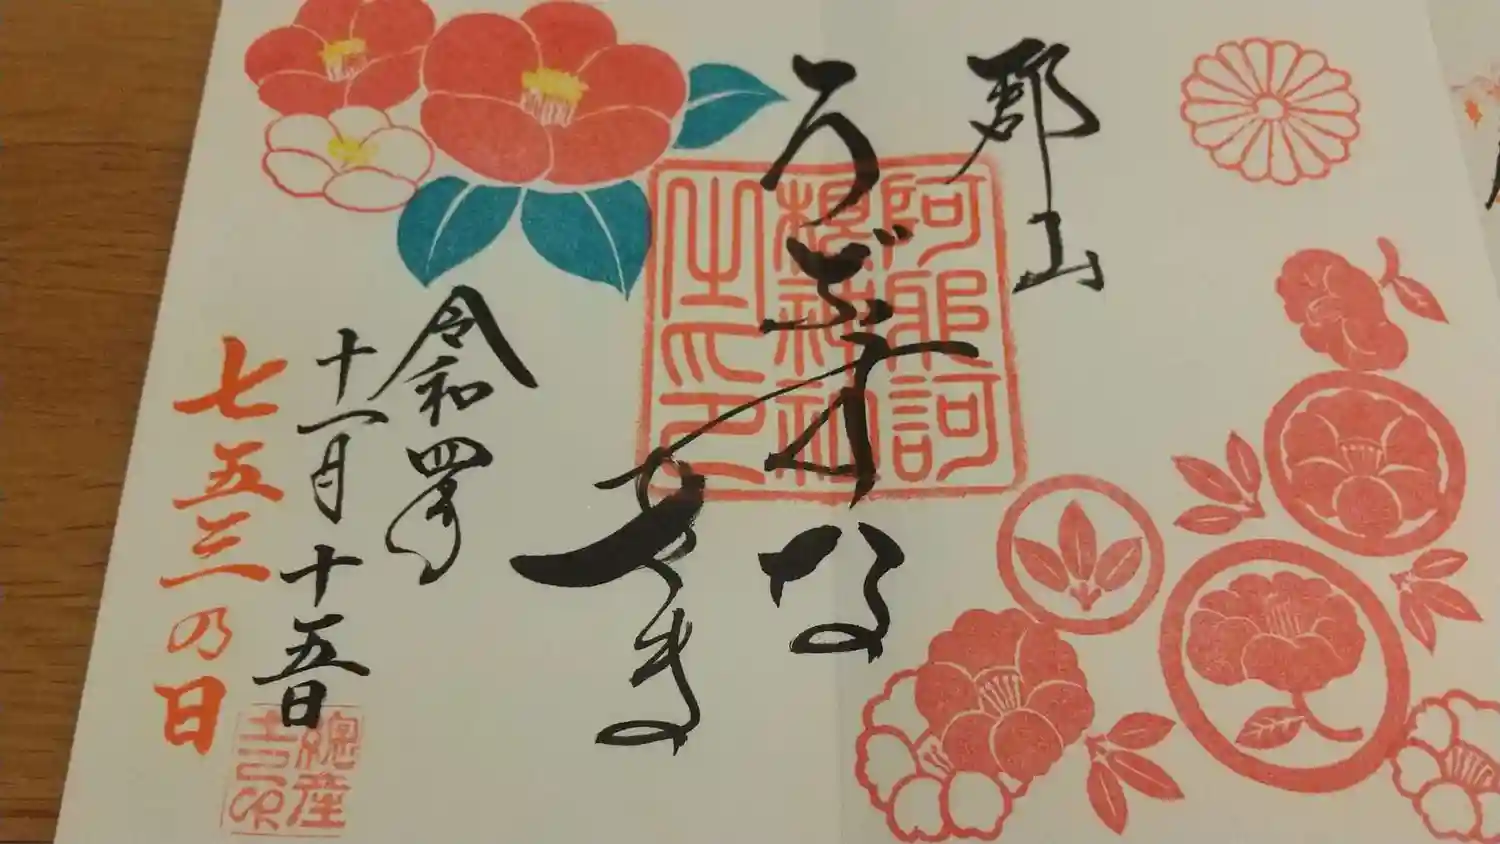 郡山
うぶすな
阿邪訶
根神社
之印
令和四年
十一月十五日
七五三の日
總産